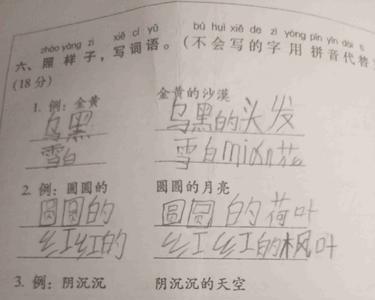 zhào yàng zi xiě cí yǔ bù huì xiě de zì yòng pīn yīn dài
六、照样子，写词语。（不会写的字用拼音代替
(18分)
1. 例：金黄 金黄的沙漠
乌黑 乌黑的头发
雪白 雪白mián花
2. 例：圆圆的 圆圆的月亮
圆圆的 圆圆的荷叶
红红的 红红的枫叶
3. 例：阴沉沉 阴沉沉的天空